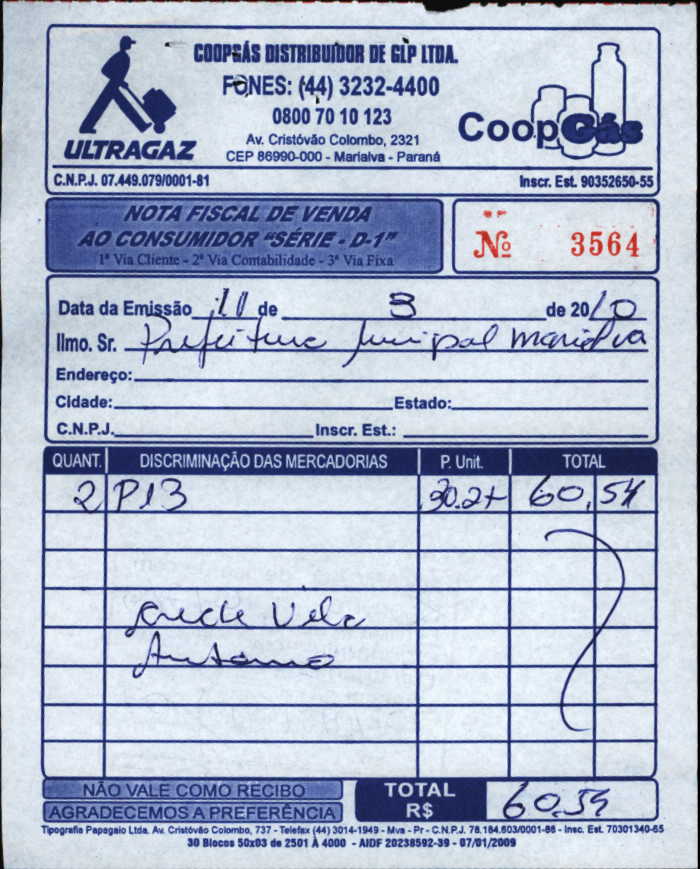 COOPGÁS DISTRIBUIDOR DE GLP LTDA.
FONES: (44) 3232-4400
0800 70 10 123
Av. Cristóvão Colombo, 2321
CEP 86990-000 - Marialva - Paraná
ULTRAGAZ
CoopGás
C.N.P.J. 07.449.079/0001-81
Inscr. Est. 90352650-55
NOTA FISCAL DE VENDA
AO CONSUMIDOR "SÉRIE - D-1"
1ª Via Cliente - 2ª Via Contabilidade - 3ª Via Fixa
Nº 3564
Data da Emissão 11 de 3 de 2010
Ilmo. Sr. Prefeitura Municipal Marialva
Endereço:
Cidade: Estado:
C.N.P.J. Inscr. Est.:
QUANT. DISCRIMINAÇÃO DAS MERCADORIAS P. Unit. TOTAL
2 P13 30.27 60,54
Antonio
NÃO VALE COMO RECIBO
AGRADECEMOS A PREFERÊNCIA
TOTAL R$ 60,54
Tipografia Papagaio Ltda. Av. Cristóvão Colombo, 737 - Telefax (44) 3014-1949 - Mva - Pr - C.N.P.J. 78.184.603/0001-86 - Insc. Est. 70301340-65
30 Blocos 50x03 de 2501 À 4000 - AIDF 20238592-39 - 07/01/2009